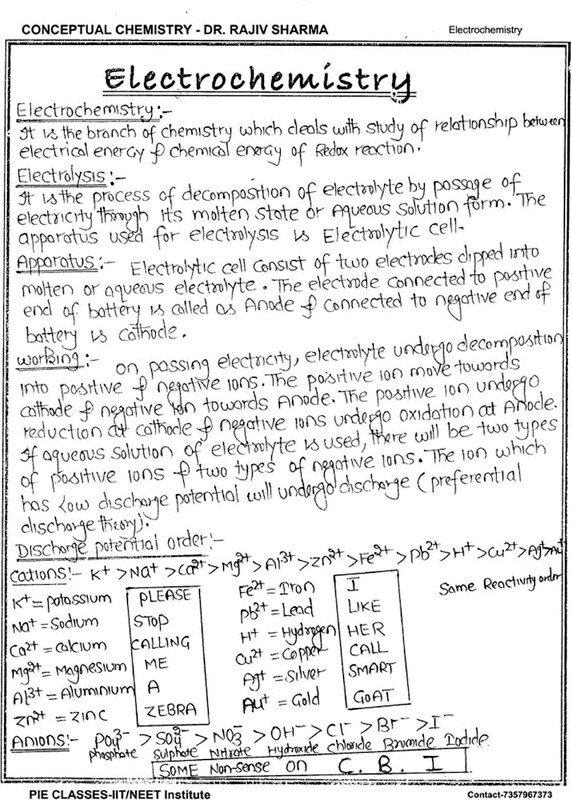 CONCEPTUAL CHEMISTRY - DR. RAJIV SHARMA Electrochemistry
Electrochemistry
Electrochemistry:-
It is the branch of chemistry which deals with study of relationship between
electrical energy & chemical energy of Redox reaction.
Electrolysis:-
It is the process of decomposition of electrolyte by passage of
electricity through its molten state or Aqueous solution form. The
apparatus used for electrolysis is Electrolytic cell.
Apparatus:- Electrolytic cell consist of two electrodes dipped into
molten or aqueous electrolyte. The electrode connected to positive
end of battery is called as Anode & connected to negative end of
battery is cathode.
working:- on passing electricity, electrolyte undergo decomposition
into positive & negative ions. The positive ion move towards
cathode & negative ion towards Anode. The positive ion undergo
reduction at cathode & negative ions undergo oxidation at Anode.
If aqueous solution of electrolyte is used, there will be two types
of positive ions & two types of negative ions. The ion which
has Low discharge potential will undergo discharge (preferential
discharge theory).
Discharge potential order:-
Cations:- K⁺ > Na⁺ > Ca²⁺ > Mg²⁺ > Al³⁺ > Zn²⁺ > Fe²⁺ > Pb²⁺ > H⁺ > Cu²⁺ > Ag⁺ > Au⁺
Same Reactivity order
K⁺ = potassium PLEASE Fe²⁺ = Iron I
Na⁺ = Sodium STOP Pb²⁺ = Lead LIKE
Ca²⁺ = calcium CALLING H⁺ = Hydrogen HER
Mg²⁺ = Magnesium ME Cu²⁺ = Copper CALL
Al³⁺ = Aluminium A Ag⁺ = Silver SMART
Zn²⁺ = ZINC ZEBRA Au⁺ = Gold GOAT
Anions:- PO₄³⁻ > SO₄²⁻ > NO₃⁻ > OH⁻ > Cl⁻ > Br⁻ > I⁻
phosphate Sulphate Nitrate Hydroxide chloride Bromide Iodide
SOME Non-Sense ON C. B. I
PIE CLASSES-IIT/NEET Institute Contact-7357967373